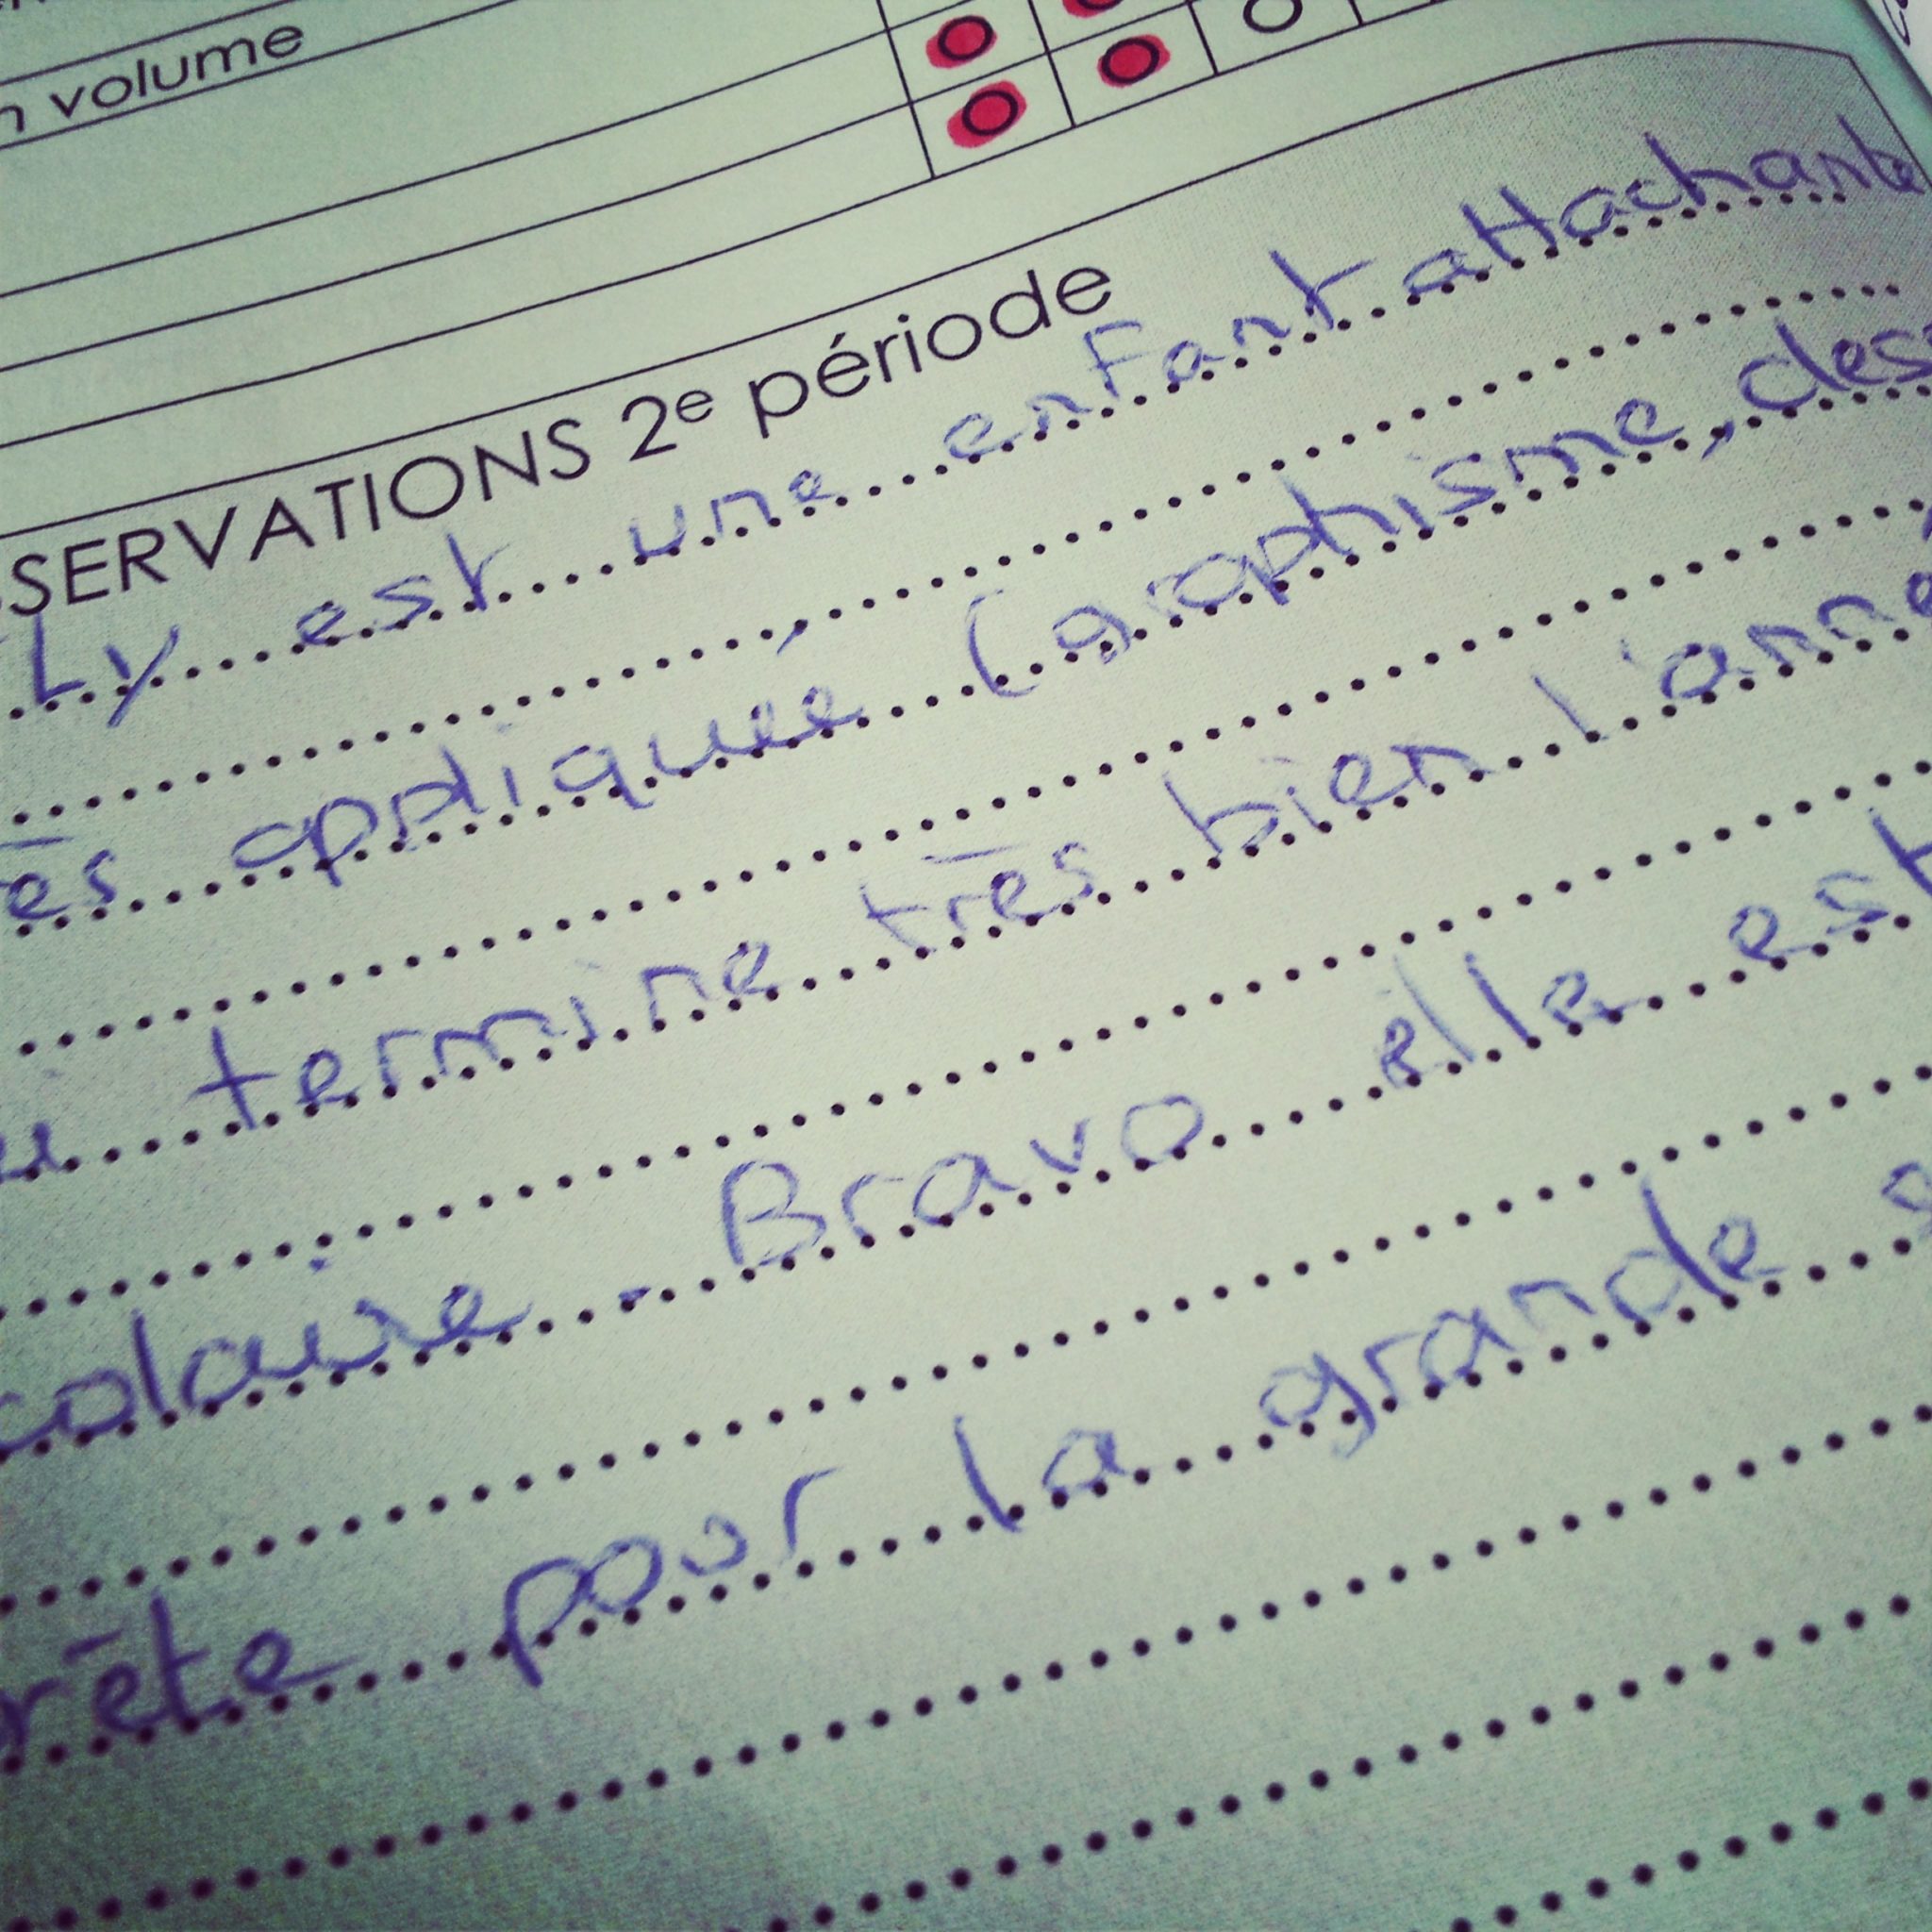 n volume
SERVATIONS 2e période
Ly est une enfant attachante
ès appliquée (graphisme, des
termine très bien l'anné
colaire - Bravo elle est
rête pour la grande s